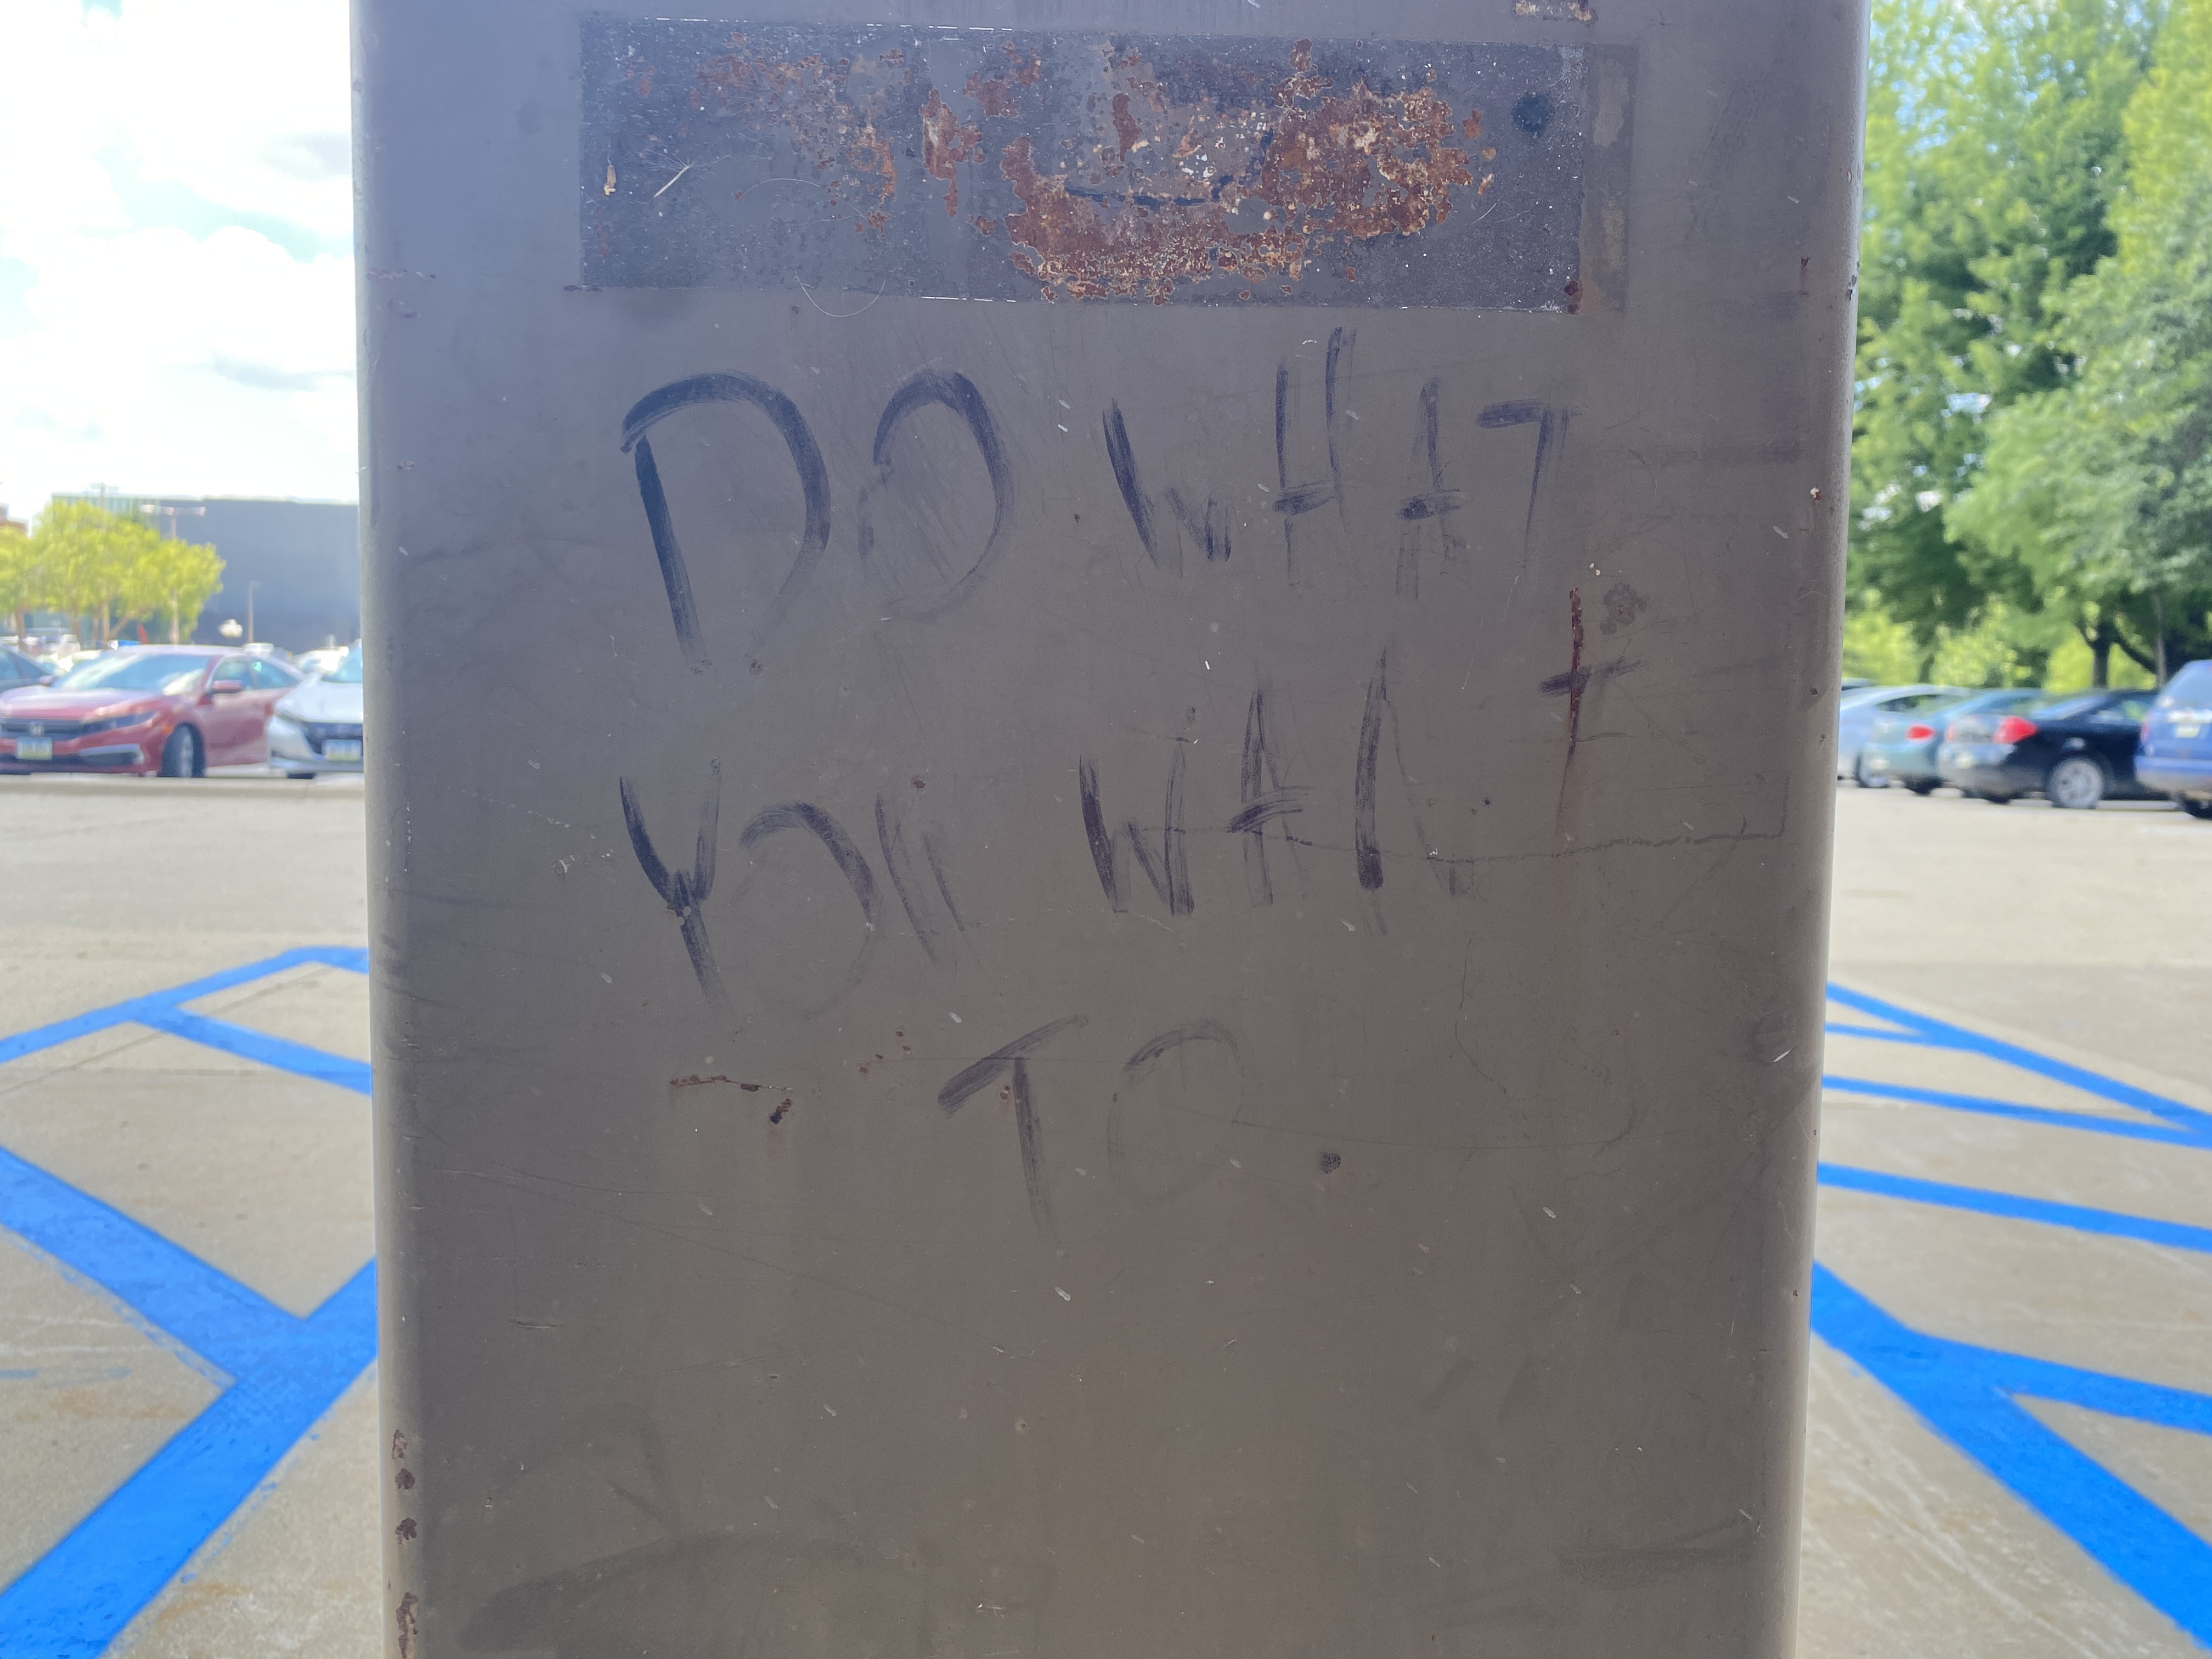 DO WHAT
YOU WANt
TO